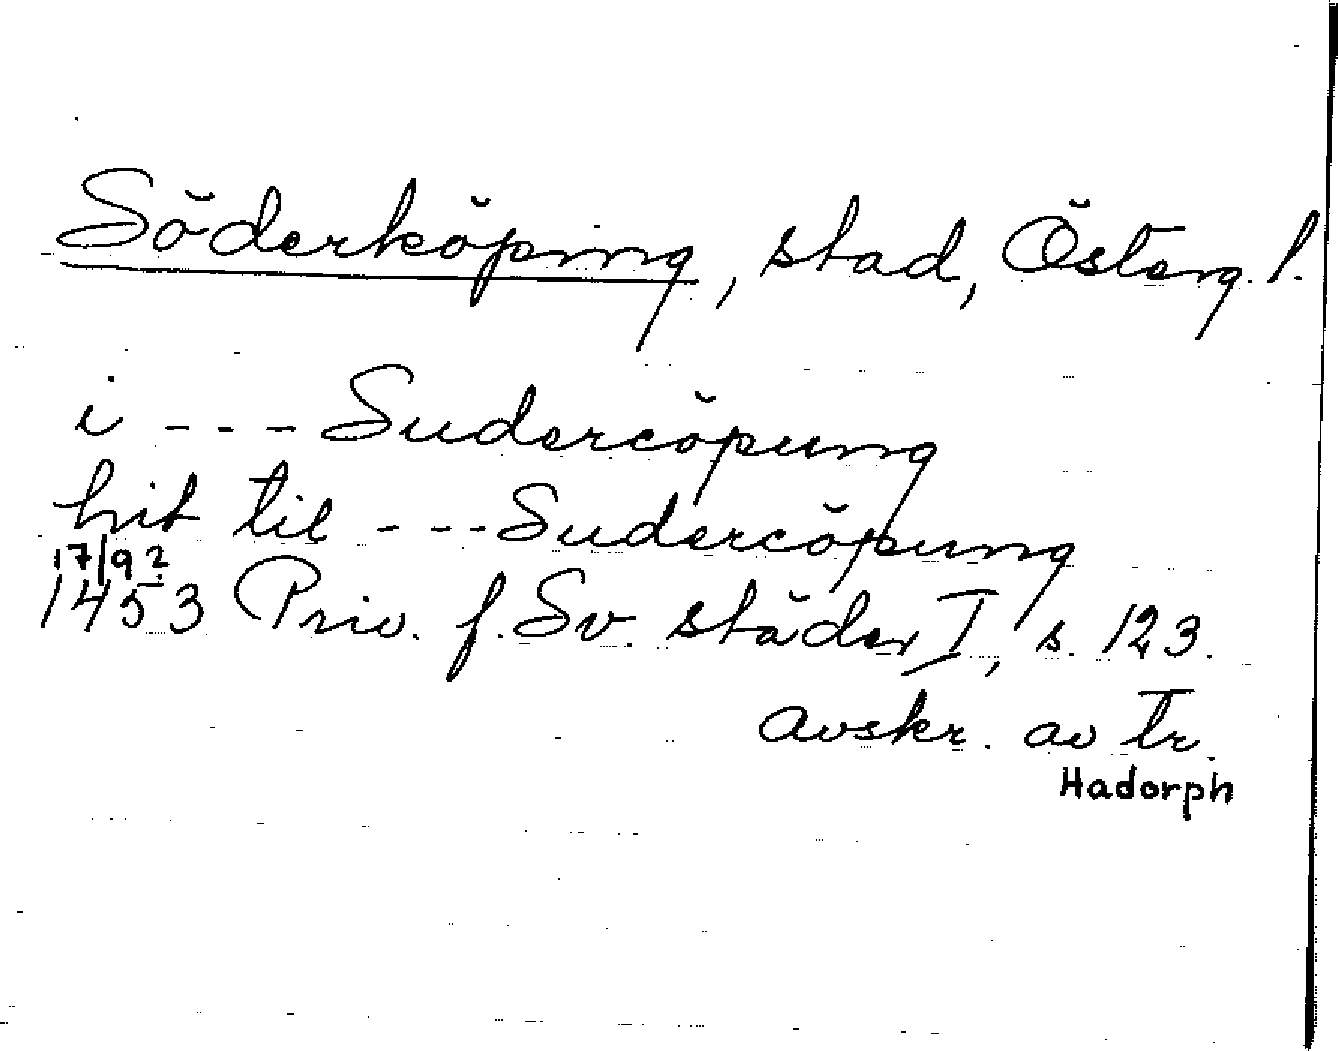 Söderköping, stad, Österg. l.
i --- Sudercöpung
hit til --- Sudercöpung
17/9 2
1453 Priv. f. Sv. städer I, s. 123.
avskr. av tr.
Hadorph